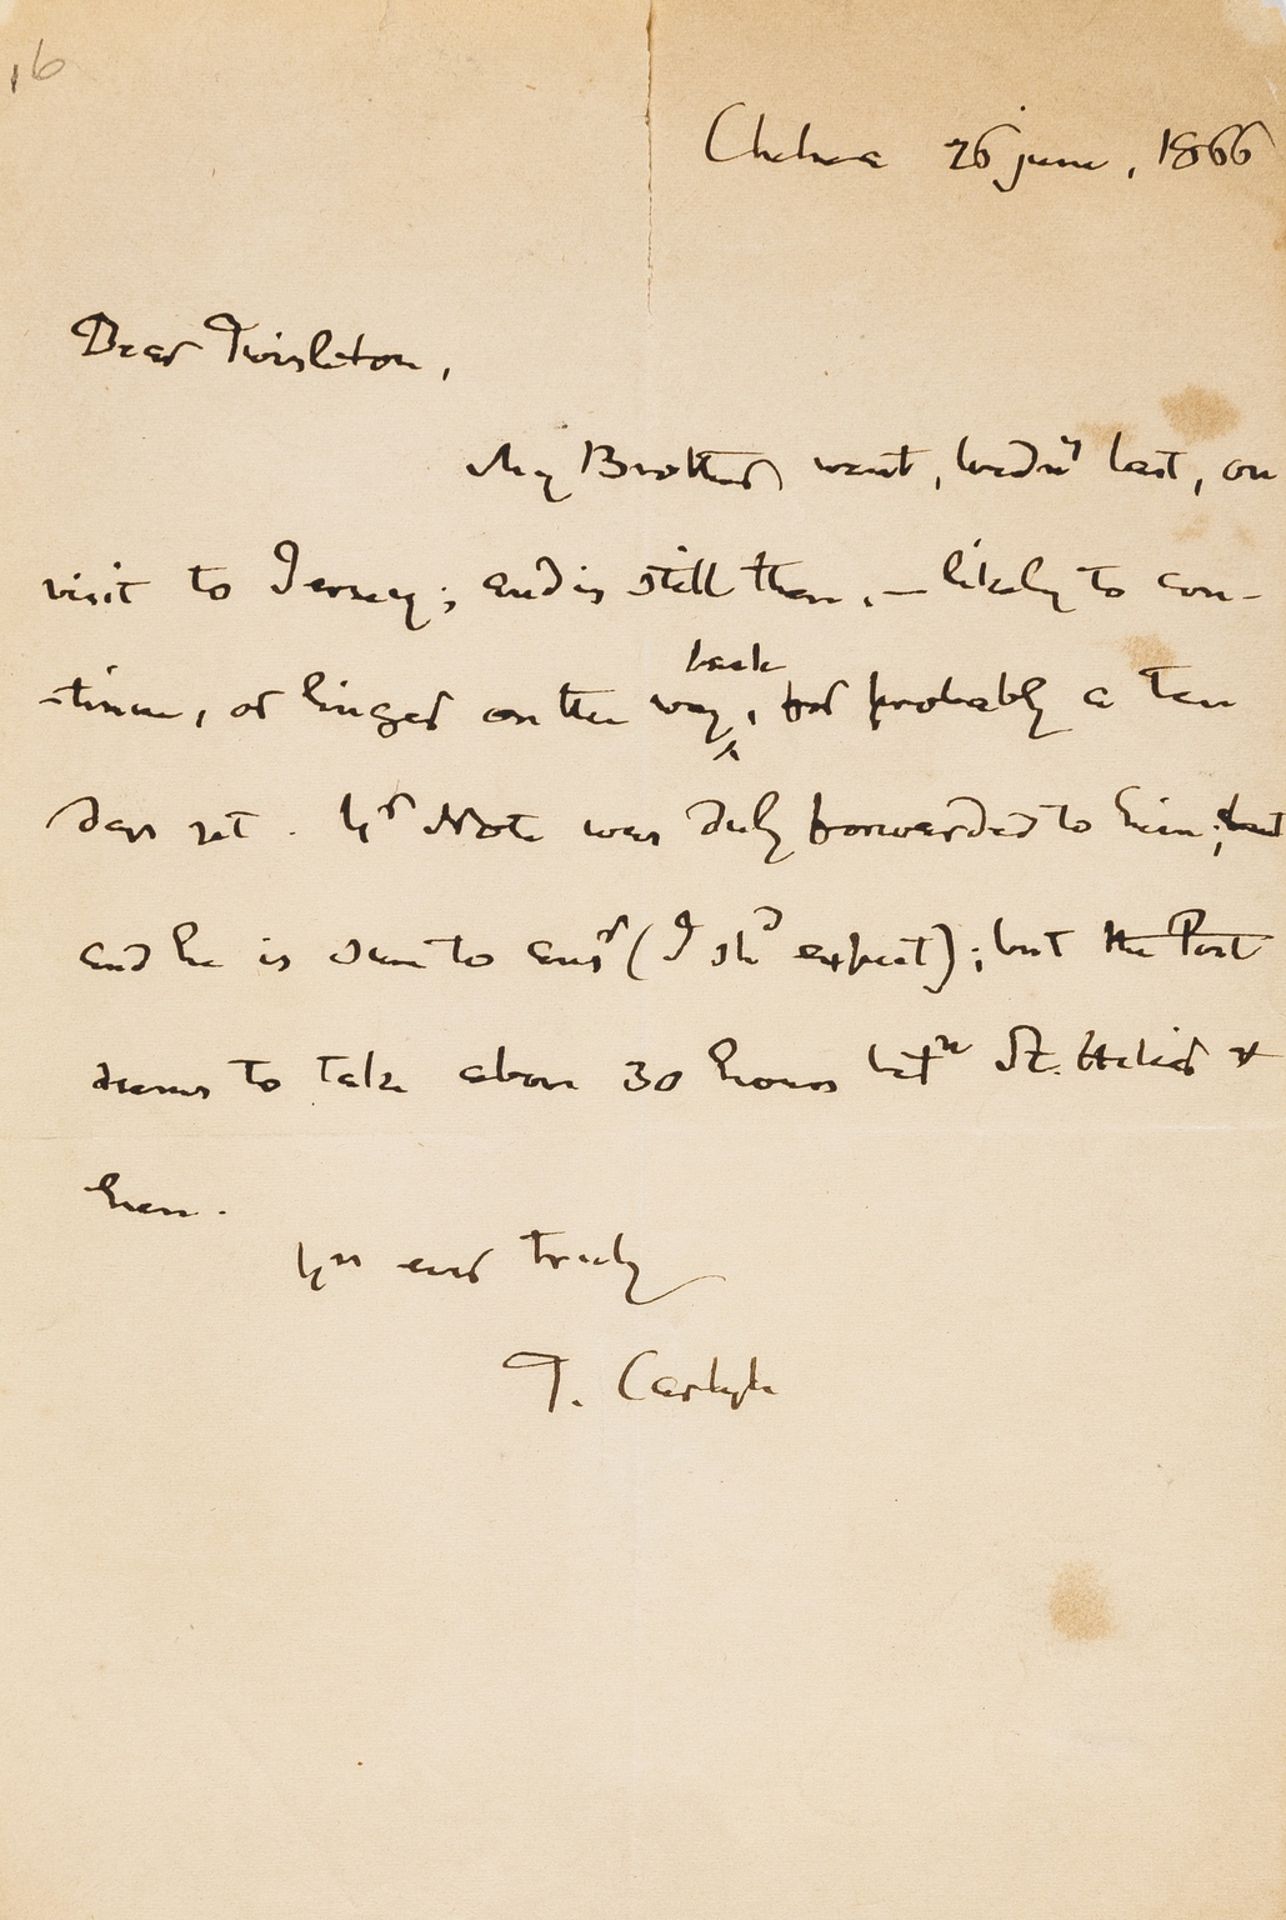 16
Chelsea 26 june, 1866
Dear Twisleton,
My Brother went, wedny last, on
visit to Jersey; and is still there, — likely to con-
back
-tinue, or linger on the way, for probably a ten
days yet. Yr Note was duly forwarded to him; but
and he is sure to ansr (I shd expect); but the Post
seems to take above 30 hours betn St. Helier &
here.
Yrs ever truly
T. Carlyle